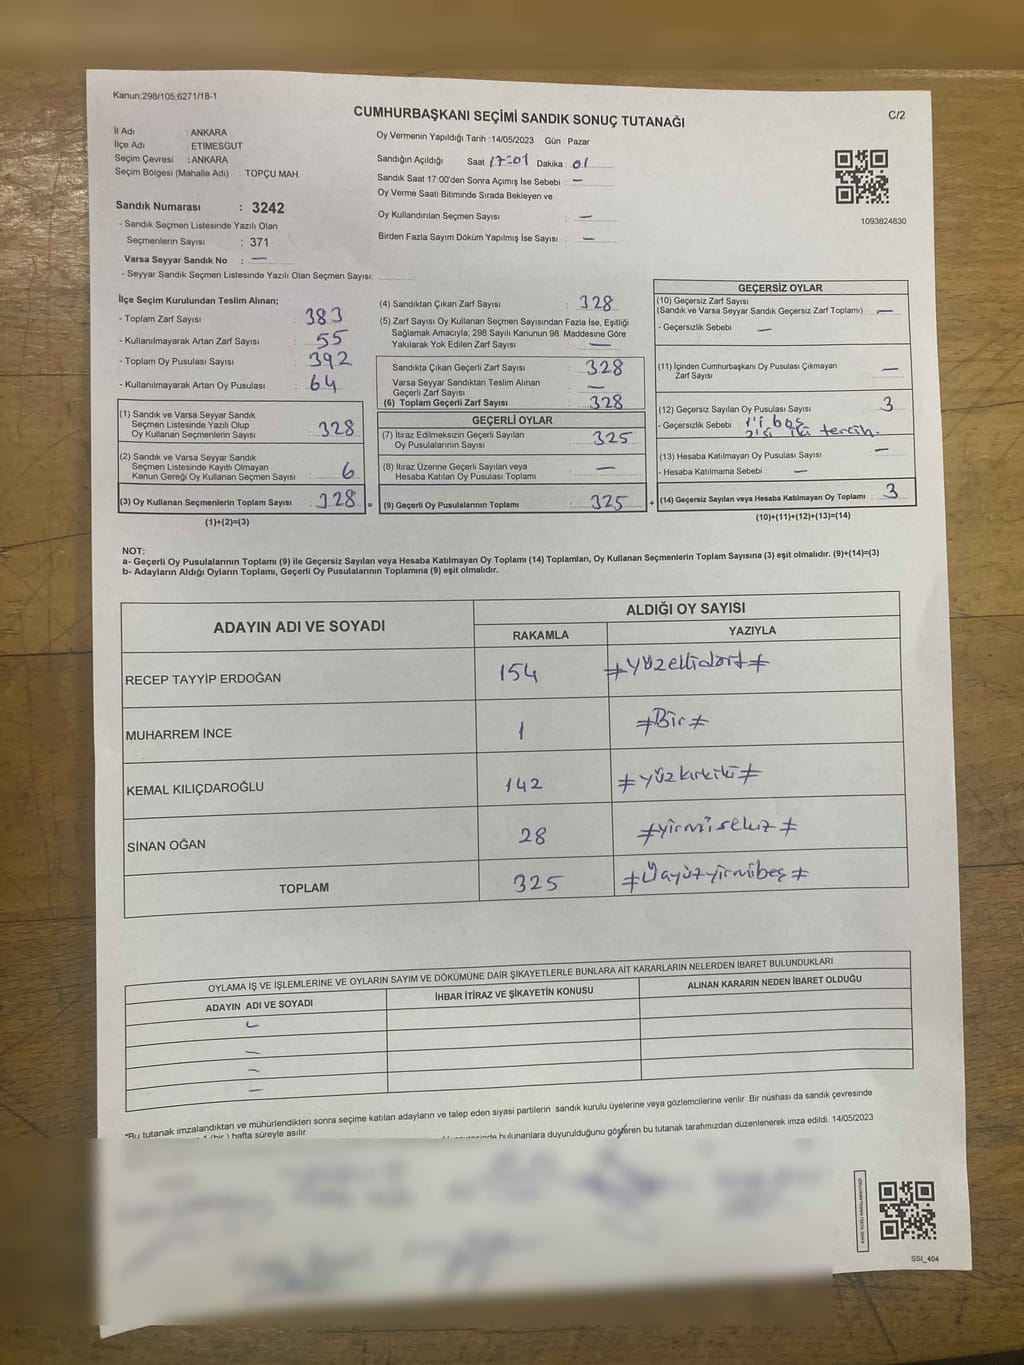 Kanun:298/105,6271/18-1
CUMHURBAŞKANI SEÇİMİ SANDIK SONUÇ TUTANAĞI
C/2
İl Adı : ANKARA
İlçe Adı : ETİMESGUT
Seçim Çevresi : ANKARA
Seçim Bölgesi (Mahalle Adı) : TOPÇU MAH.
Oy Vermenin Yapıldığı Tarih :14/05/2023 Gün : Pazar
Sandığın Açıldığı Saat 17-01 Dakika : 01
Sandık Saat 17:00'den Sonra Açımış İse Sebebi : —
Oy Verme Saati Bitiminde Sırada Bekleyen ve
Oy Kullandırılan Seçmen Sayısı : —
Birden Fazla Sayım Döküm Yapılmış İse Sayısı : —
1093824830
Sandık Numarası : 3242
- Sandık Seçmen Listesinde Yazılı Olan
Seçmenlerin Sayısı : 371
Varsa Seyyar Sandık No : —
- Seyyar Sandık Seçmen Listesinde Yazılı Olan Seçmen Sayısı:
İlçe Seçim Kurulundan Teslim Alınan;
- Toplam Zarf Sayısı : 383
- Kullanılmayarak Artan Zarf Sayısı : 55
- Toplam Oy Pusulası Sayısı : 392
- Kullanılmayarak Artan Oy Pusulası : 64
(1) Sandık ve Varsa Seyyar Sandık
Seçmen Listesinde Yazılı Olup
Oy Kullanan Seçmenlerin Sayısı : 328
(2) Sandık ve Varsa Seyyar Sandık
Seçmen Listesinde Kayıtlı Olmayan
Kanun Gereği Oy Kullanan Seçmen Sayısı : 6
(3) Oy Kullanan Seçmenlerin Toplam Sayısı : 328 =
(1)+(2)=(3)
(4) Sandıktan Çıkan Zarf Sayısı : 328
(5) Zarf Sayısı Oy Kullanan Seçmen Sayısından Fazla İse, Eşitliği
Sağlamak Amacıyla, 298 Sayılı Kanunun 98. Maddesine Göre
Yakılarak Yok Edilen Zarf Sayısı : —
Sandıkta Çıkan Geçerli Zarf Sayısı : 328
Varsa Seyyar Sandıktan Teslim Alınan
Geçerli Zarf Sayısı : —
(6) Toplam Geçerli Zarf Sayısı : 328
GEÇERLİ OYLAR
(7) İtiraz Edilmeksizin Geçerli Sayılan
Oy Pusulalarının Sayısı : 325
(8) İtiraz Üzerine Geçerli Sayılan veya
Hesaba Katılan Oy Pusulası Toplamı : —
(9) Geçerli Oy Pusulalarının Toplamı : 325 +
GEÇERSİZ OYLAR
(10) Geçersiz Zarf Sayısı
(Sandık ve Varsa Seyyar Sandık Geçersiz Zarf Toplamı) : —
- Geçersizlik Sebebi : —
(11) İçinden Cumhurbaşkanı Oy Pusulası Çıkmayan
Zarf Sayısı : —
(12) Geçersiz Sayılan Oy Pusulası Sayısı : 3
- Geçersizlik Sebebi : 1'i boş
2'si iki tercih.
(13) Hesaba Katılmayan Oy Pusulası Sayısı : —
- Hesaba Katılmama Sebebi : —
(14) Geçersiz Sayılan veya Hesaba Katılmayan Oy Toplamı : 3
(10)+(11)+(12)+(13)=(14)
NOT:
a- Geçerli Oy Pusulalarının Toplamı (9) ile Geçersiz Sayılan veya Hesaba Katılmayan Oy Toplamı (14) Toplamları, Oy Kullanan Seçmenlerin Toplam Sayısına (3) eşit olmalıdır. (9)+(14)=(3)
b- Adayların Aldığı Oyların Toplamı, Geçerli Oy Pusulalarının Toplamına (9) eşit olmalıdır.
ADAYIN ADI VE SOYADI
ALDIĞI OY SAYISI
RAKAMLA YAZIYLA
RECEP TAYYİP ERDOĞAN 154 ≠yüzellidört≠
MUHARREM İNCE 1 ≠Bir≠
KEMAL KILIÇDAROĞLU 142 ≠yüzkırkiki≠
SİNAN OĞAN 28 ≠yirmisekiz≠
TOPLAM 325 ≠Üçyüzyirmibeş≠
OYLAMA İŞ VE İŞLEMLERİNE VE OYLARIN SAYIM VE DÖKÜMÜNE DAİR ŞİKAYETLERLE BUNLARA AİT KARARLARIN NELERDEN İBARET BULUNDUKLARI
ADAYIN ADI VE SOYADI İHBAR İTİRAZ VE ŞİKAYETİN KONUSU ALINAN KARARIN NEDEN İBARET OLDUĞU
—
—
—
—
*Bu tutanak imzalandıktan ve mühürlendikten sonra seçime katılan adayların ve talep eden siyasi partilerin sandık kurulu üyelerine veya gözlemcilerine verilir. Bir nüshası da sandık çevresinde
1 (bir) hafta süreyle asılır.
bulunanlara duyurulduğunu gösteren bu tutanak tarafımızdan düzenlenerek imza edildi. 14/05/2023
SSI_404